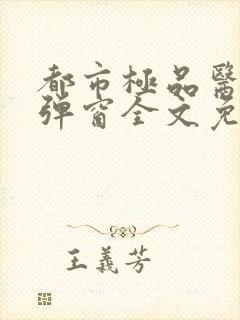 都市極品醫
彈窗全文免
王義芳